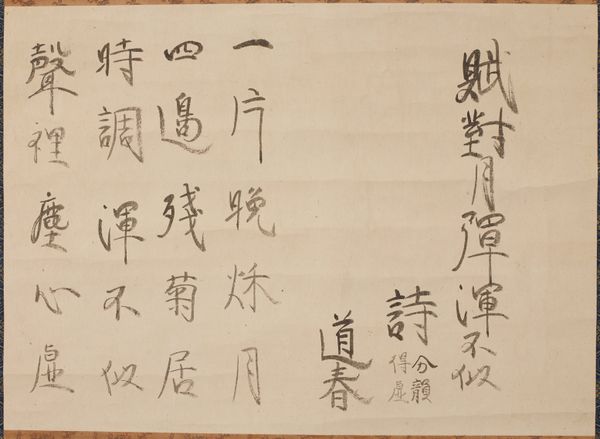 賦對月彈渾不似
詩 分韻得虛
道春
一片晩秌月
四邉残菊居
時調渾不似
聲裡塵心虛